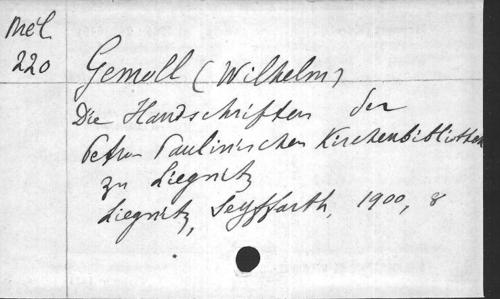 Mél.
220
Gemoll (Wilhelm)
Die Handschriften der
Petro-Paulinischen Kirchenbibliothek
zu Liegnitz
Liegnitz, Seyffarth, 1900, 8